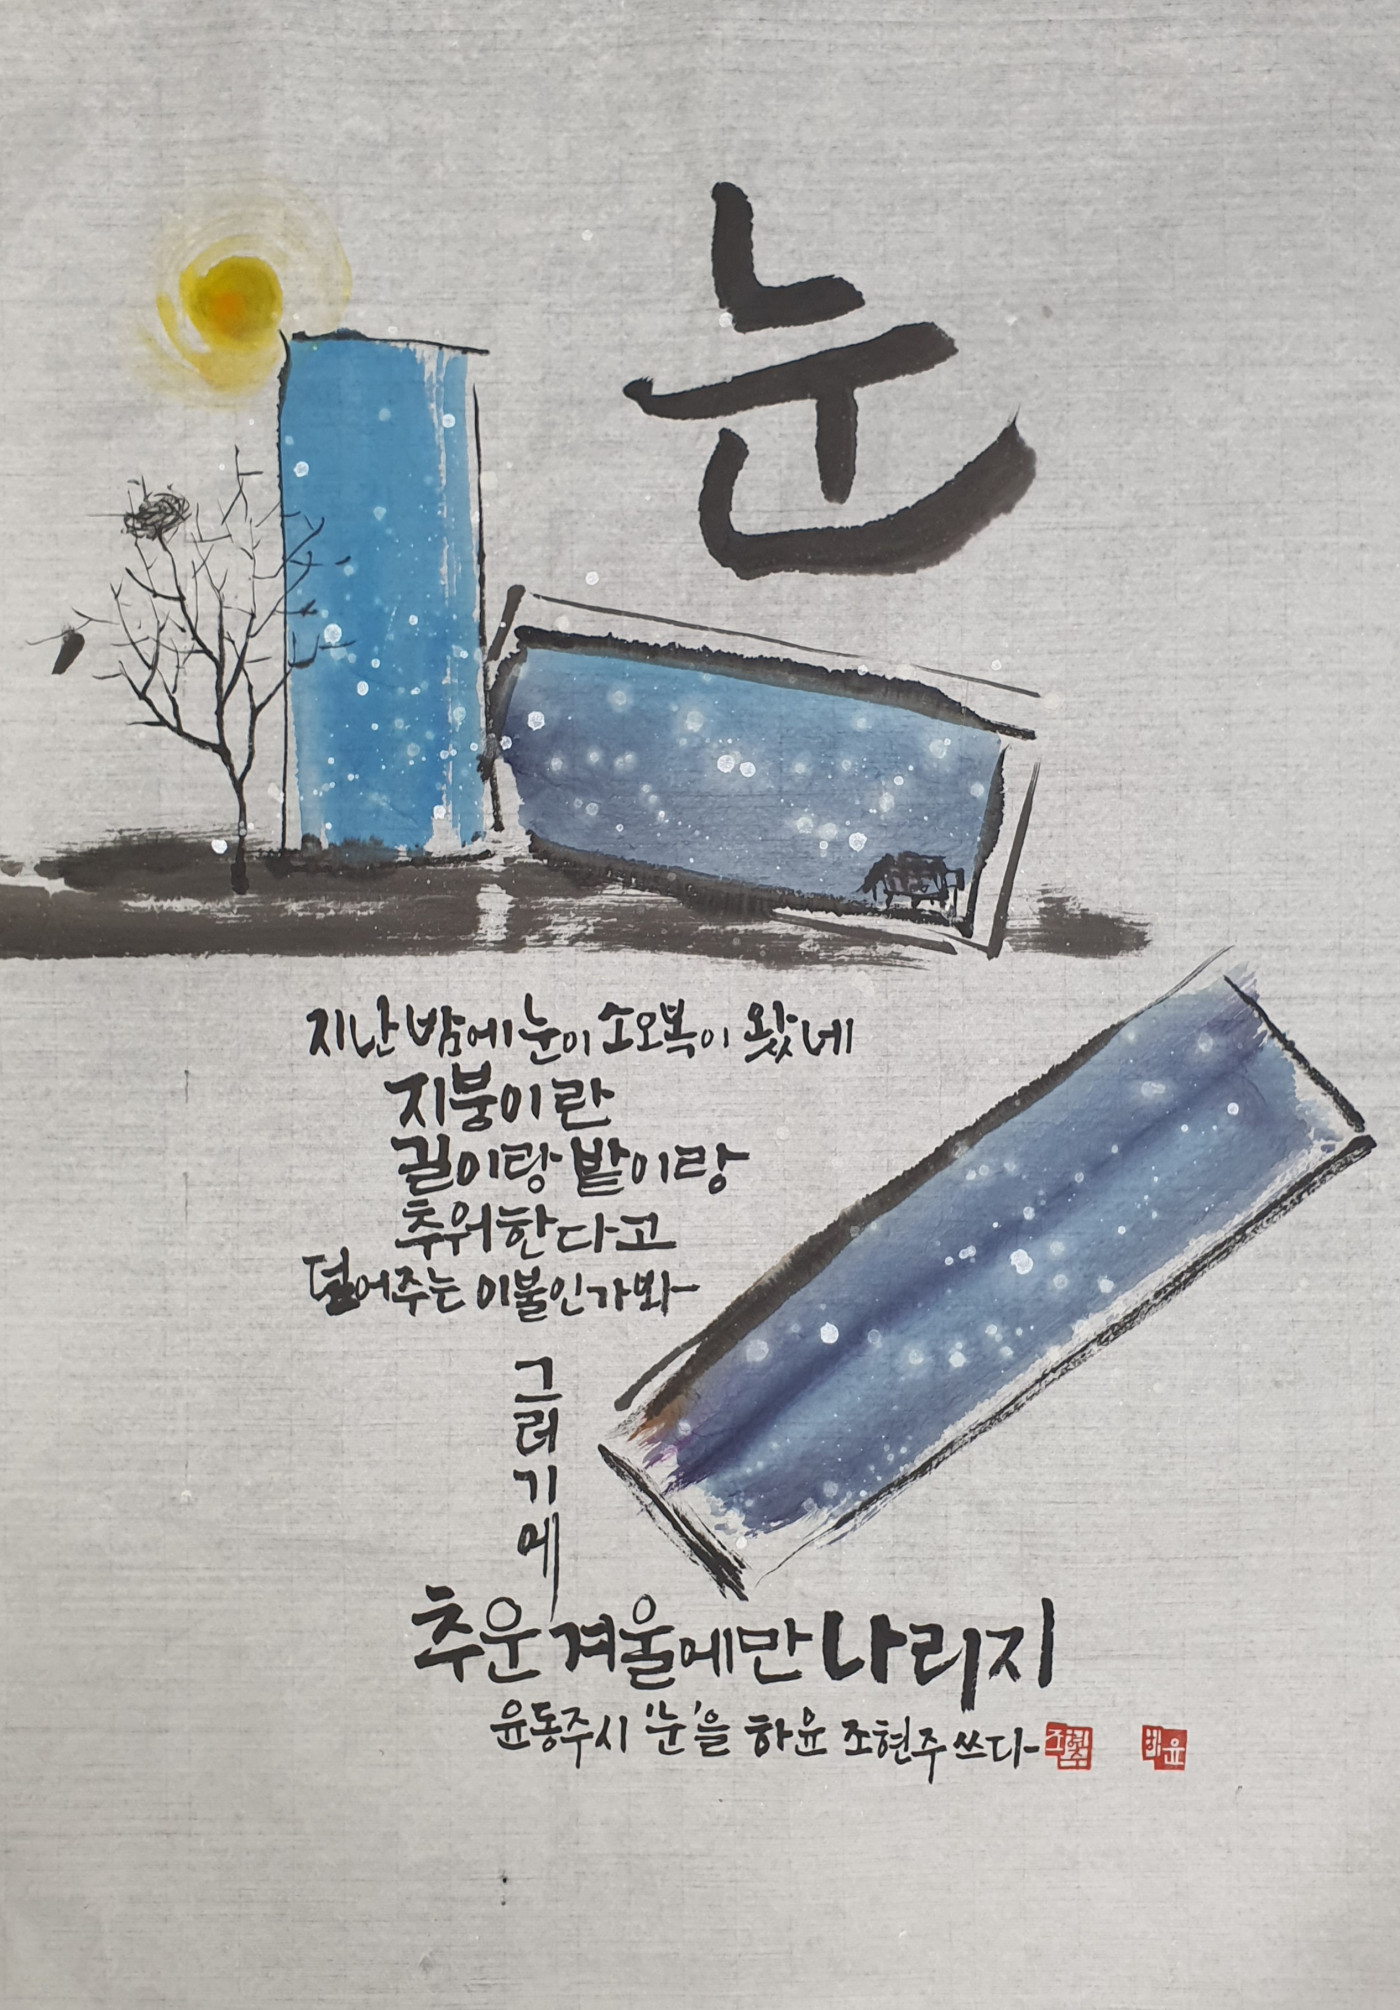 눈
지난밤에 눈이 소오복이 왔네
지붕이란
길이랑 밭이랑
추워한다고
덮어주는 이불인가봐
그러기에
추운 겨울에만 나리지
윤동주시 '눈'을 하윤 조현주 쓰다
조현주
하윤